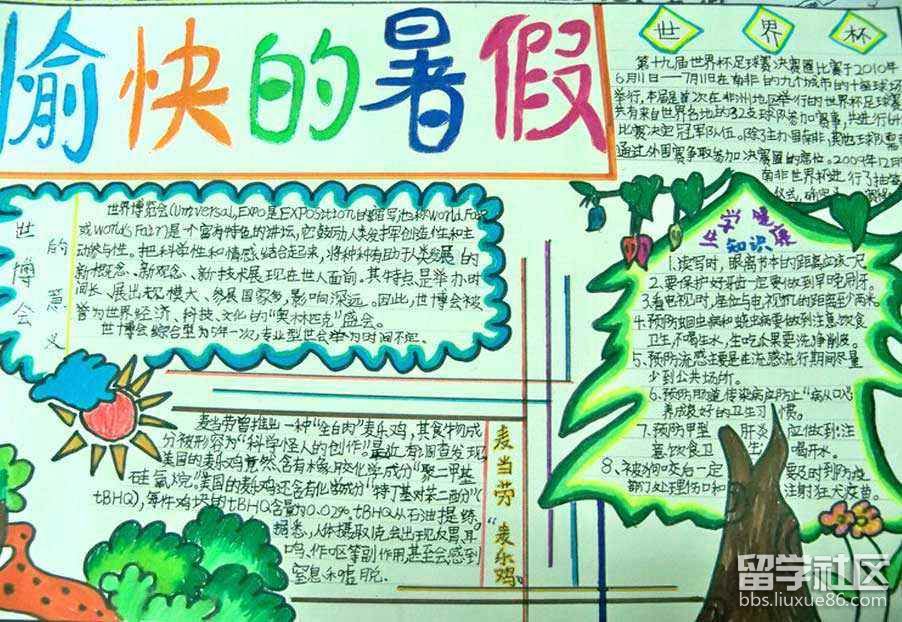 愉快的暑假
世界杯
第十九届世界杯足球赛决赛圈比赛于2010年
6月11日——7月11日在南非的九个城市的十座球场
举行,本届是首次在非洲地区举行的世界杯足球赛
共有来自世界各地的32支球队参加赛事,共进行64
比赛决定冠军队伍。除了主办国南非,其他球队需
通过外围赛争取参加决赛圈的席位。2009年12月
南非世界杯进行了抽签
仪式,
世博会
的意义
世界博览会(Universal,Expo是EXPOSition的缩写;也称World Fair
或World's Fair)是一个富有特色的讲坛,它鼓励人类发挥创造性和主
动参与性。把科学性和情感结合起来,将种种有助于人类发展的
新概念、新观念、新技术展现在世人面前。其特点是举办时
间长、展出规模大、参展国家多,影响深远。因此,世博会被
誉为世界经济、科技、文化的“奥林匹克”盛会。
世博会综合型为5年一次,专业型世会举为时间不定。
健康
知识
1.读写时,眼离书本的距离应该一尺
2.要保护好牙齿一定要做到早晚刷牙。
3.看电视时,座位与电视机的距离至少两米。
4.预防蛔虫病和蛲虫病要做到注意饮食
卫生,不喝生水,生吃瓜果要洗净削皮。
5.预防流感主要是在流感流行期间尽量
少到公共场所。
6.预防肠道传染病应防止“病从口入”
养成良好的卫生习惯。
7.预防甲型肝炎应做到:注
意饮食卫生,喝开水。
8.被狗咬后一定要及时到防疫
部门处理伤口和注射狂犬疫苗。
麦当劳曾推出一种“全白肉”麦乐鸡,其食物成
分被形容为“科学怪人的创作”。最近有调查发现,
美国的麦乐鸡竟然含有水象胶化学成分“聚二甲基
硅氧烷”。美国的麦乐鸡还含有化学成分“特丁基对苯二酚”(
tBHQ),每件鸡块的tBHQ含量为0.02%。tBHQ从石油提练,
据悉,人体摄取1克,会出现反胃、耳
鸣、作呕等副作用,甚至会感到
窒息和虚脱。
麦当劳“麦乐鸡”
留学社区
bbs.liuxue86.com